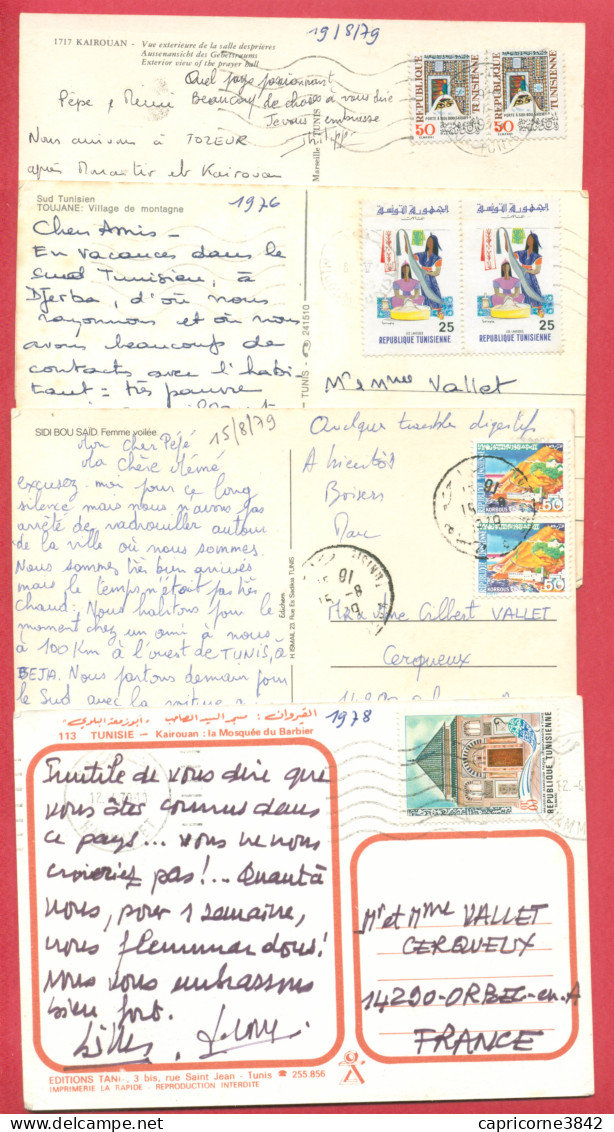 1717 KAIROUAN - Vue exterieure de la salle desprieres
Aussenansicht des Gebetsraums
Exterior view of the prayer hall
19/8/79
Quel pays passionnant
Beaucoup de choses à vous dire
Je vous embrasse
Philippe
Pépé & Mémé
Nous arrivons à TOZEUR
après Monastir et Kairouan
Marseille TUNIS
REPUBLIQUE TUNISIENNE
50
REPUBLIQUE TUNISIENNE
50
Sud Tunisien
TOUJANE: Village de montagne
1976
Chers Amis -
En vacances dans le
Sud Tunisien, à
Djerba, d'où nous
rayonnons et où nous
avons beaucoup de
contacts avec l'habi-
tant = très pauvre
TUNIS - 241510
الجمهورية التونسية
25
REPUBLIQUE TUNISIENNE
الجمهورية التونسية
25
REPUBLIQUE TUNISIENNE
Mr & Mme Vallet
SIDI BOU SAÏD. Femme voilée
15/8/79
Mon Cher Pépé
Ma Chère Mémé
excusez-moi pour ce long
silence mais nous n'avons pas
arrêté de vadrouiller autour
de la ville où nous sommes.
Nous sommes très bien arrivés
mais le temps n'était pas très
chaud. Nous habitons pour le
moment chez un ami à nous
à 100 Km à l'ouest de TUNIS, à
BEJA. Nous partons demain pour
le Sud avec la voiture
Edichem
H. ISMAIL 23, Rue Es Sadikia TUNIS
Quelque trouble digestifs
A bientôt
Baisers
Marc
REPUBLIQUE TUNISIENNE
KORBOUS
REPUBLIQUE TUNISIENNE
KORBOUS
Gilbert VALLET
Cerqueux
القيروان : مسجد السيد الصاحب «أبو زمعة البلوي»
113 TUNISIE - Kairouan : la Mosquée du Barbier
1978
REPUBLIQUE TUNISIENNE
Inutile de vous dire que
vous êtes connus dans
ce pays... vous ne nous
croiriez pas !.. Quant à
nous, pour 1 semaine,
nous flemmardons !
Nous vous embrassons
bien fort.
Mr et Mme VALLET
CERQUEUX
14290-ORBEC-en-A
FRANCE
EDITIONS TANI-, 3 bis, rue Saint Jean - Tunis ☎ 255.856
IMPRIMERIE LA RAPIDE - REPRODUCTION INTERDITE
capricorne3842